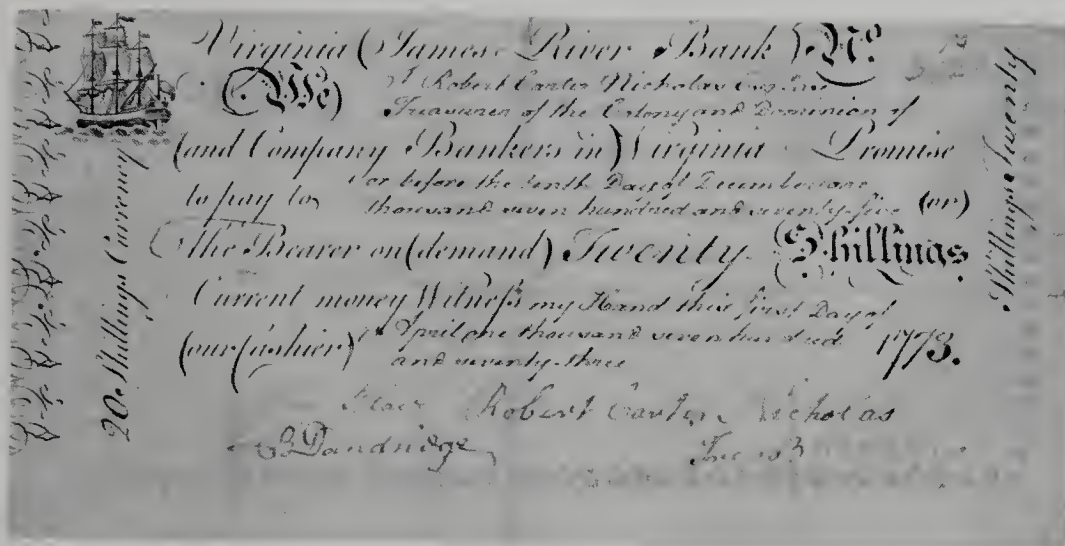 Virginia (James River Bank) No.
(We) I Robert Carter Nicholas
Treasurer of the Colony and Dominion of
(and Company Bankers in) Virginia Promise
to pay to or before the tenth Day of December one
thousand seven hundred and seventy-five (or)
the Bearer on (demand) Twenty Shillings
Current money Witness my Hand this first Day of
(our Cashier) April one thousand seven hundred 1773.
and seventy-three
Robert Carter Nicholas
Dandridge
20 Shillings Currency
Shillings twenty